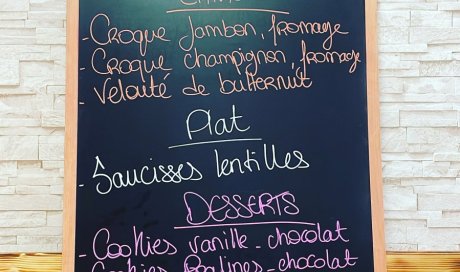 - Croque Jambon, fromage
- Croque champignon, fromage
- Velouté de butternut
Plat
- Saucisses lentilles
DESSERTS
- Cookies vanille - chocolat
- Cookies Pralines - chocolat